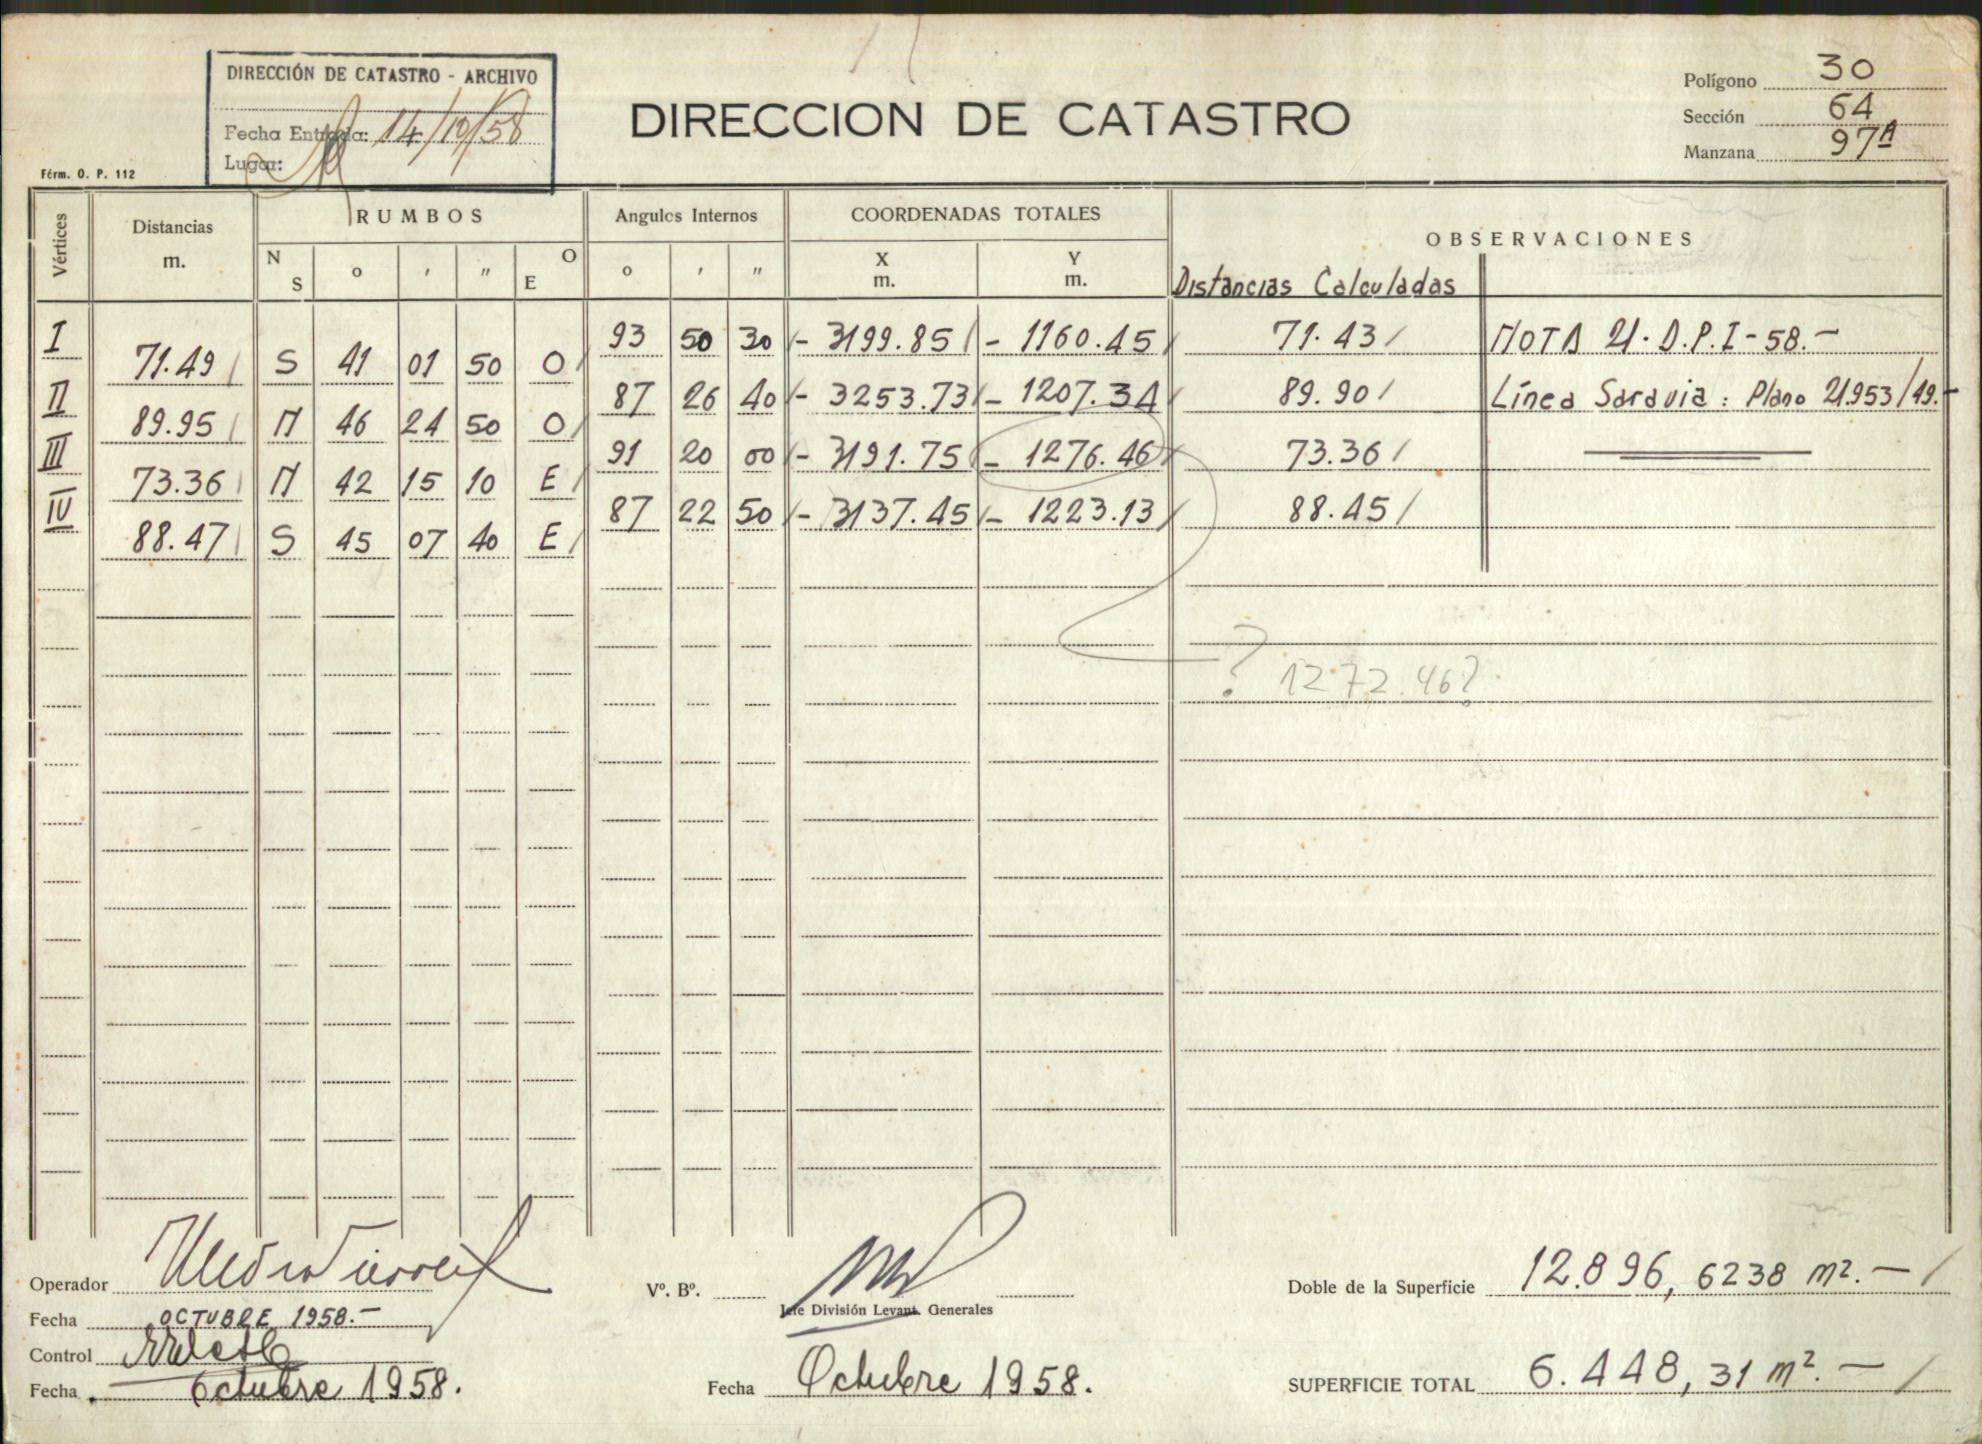 DIRECCIÓN DE CATASTRO - ARCHIVO
Fecha Entrada: 14/10/58
Lugar:
Fórm. O. P. 112
DIRECCION DE CATASTRO
Polígono 30
Sección 64
Manzana 97A
Vértices Distancias m. RUMBOS Angulos Internos COORDENADAS TOTALES OBSERVACIONES
N S o ' " E O o ' " X m. Y m. Distancias Calculadas
I 93 50 30 - 3199.85 - 1160.45 71.43 NOTA 21. D.P.I-58.-
71.49 S 41 01 50 O
II 87 26 40 - 3253.73 - 1207.34 89.90 Línea Saravia: Plano 21.953/49.-
89.95 N 46 24 50 O
III 91 20 00 - 3191.75 - 1276.46 73.36
73.36 N 42 15 10 E
IV 87 22 50 - 3137.45 - 1223.13 88.45
88.47 S 45 07 40 E
? 1272.46?
Operador
Fecha OCTUBRE 1958.-
Control
Fecha Octubre 1958.
Vº. Bº.
Jefe División Levant. Generales
Fecha Octubre 1958.
Doble de la Superficie 12.896,6238 m2.-
SUPERFICIE TOTAL 6.448,31 m2.-